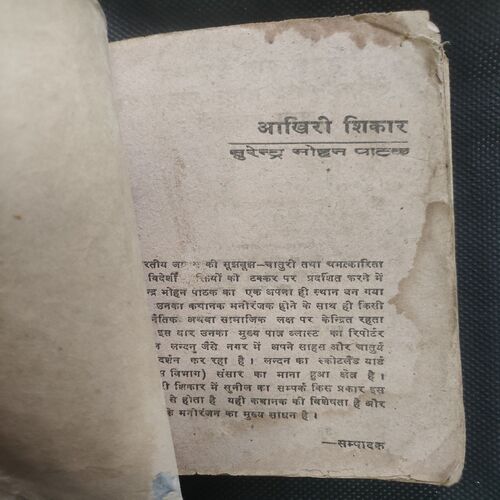 आखिरी शिकार
सुरेन्द्र मोहन पाठक
की सूझबूझ—चातुरी तथा चमत्कारिता
विदेशी को टक्कर पर प्रदर्शित करने में
मोहन पाठक का एक अपना ही स्थान बन गया
उनका कथानक मनोरंजक होने के साथ ही किसी
अथवा सामाजिक लक्ष पर केन्द्रित रहता
इस बार उनका मुख्य पात्र ब्लास्ट का रिपोर्टर
लन्दन जैसे नगर में अपने साहस और चातुर्य
दर्शन कर रहा है। लन्दन का स्कॉटलैंड यार्ड
विभाग) संसार का माना हुआ क्षेत्र है।
शिकार में सुनील का सम्पर्क किस प्रकार इस
से होता है यही कथानक की विशेषता है और
के मनोरंजन का मुख्य साधन है।
—सम्पादक